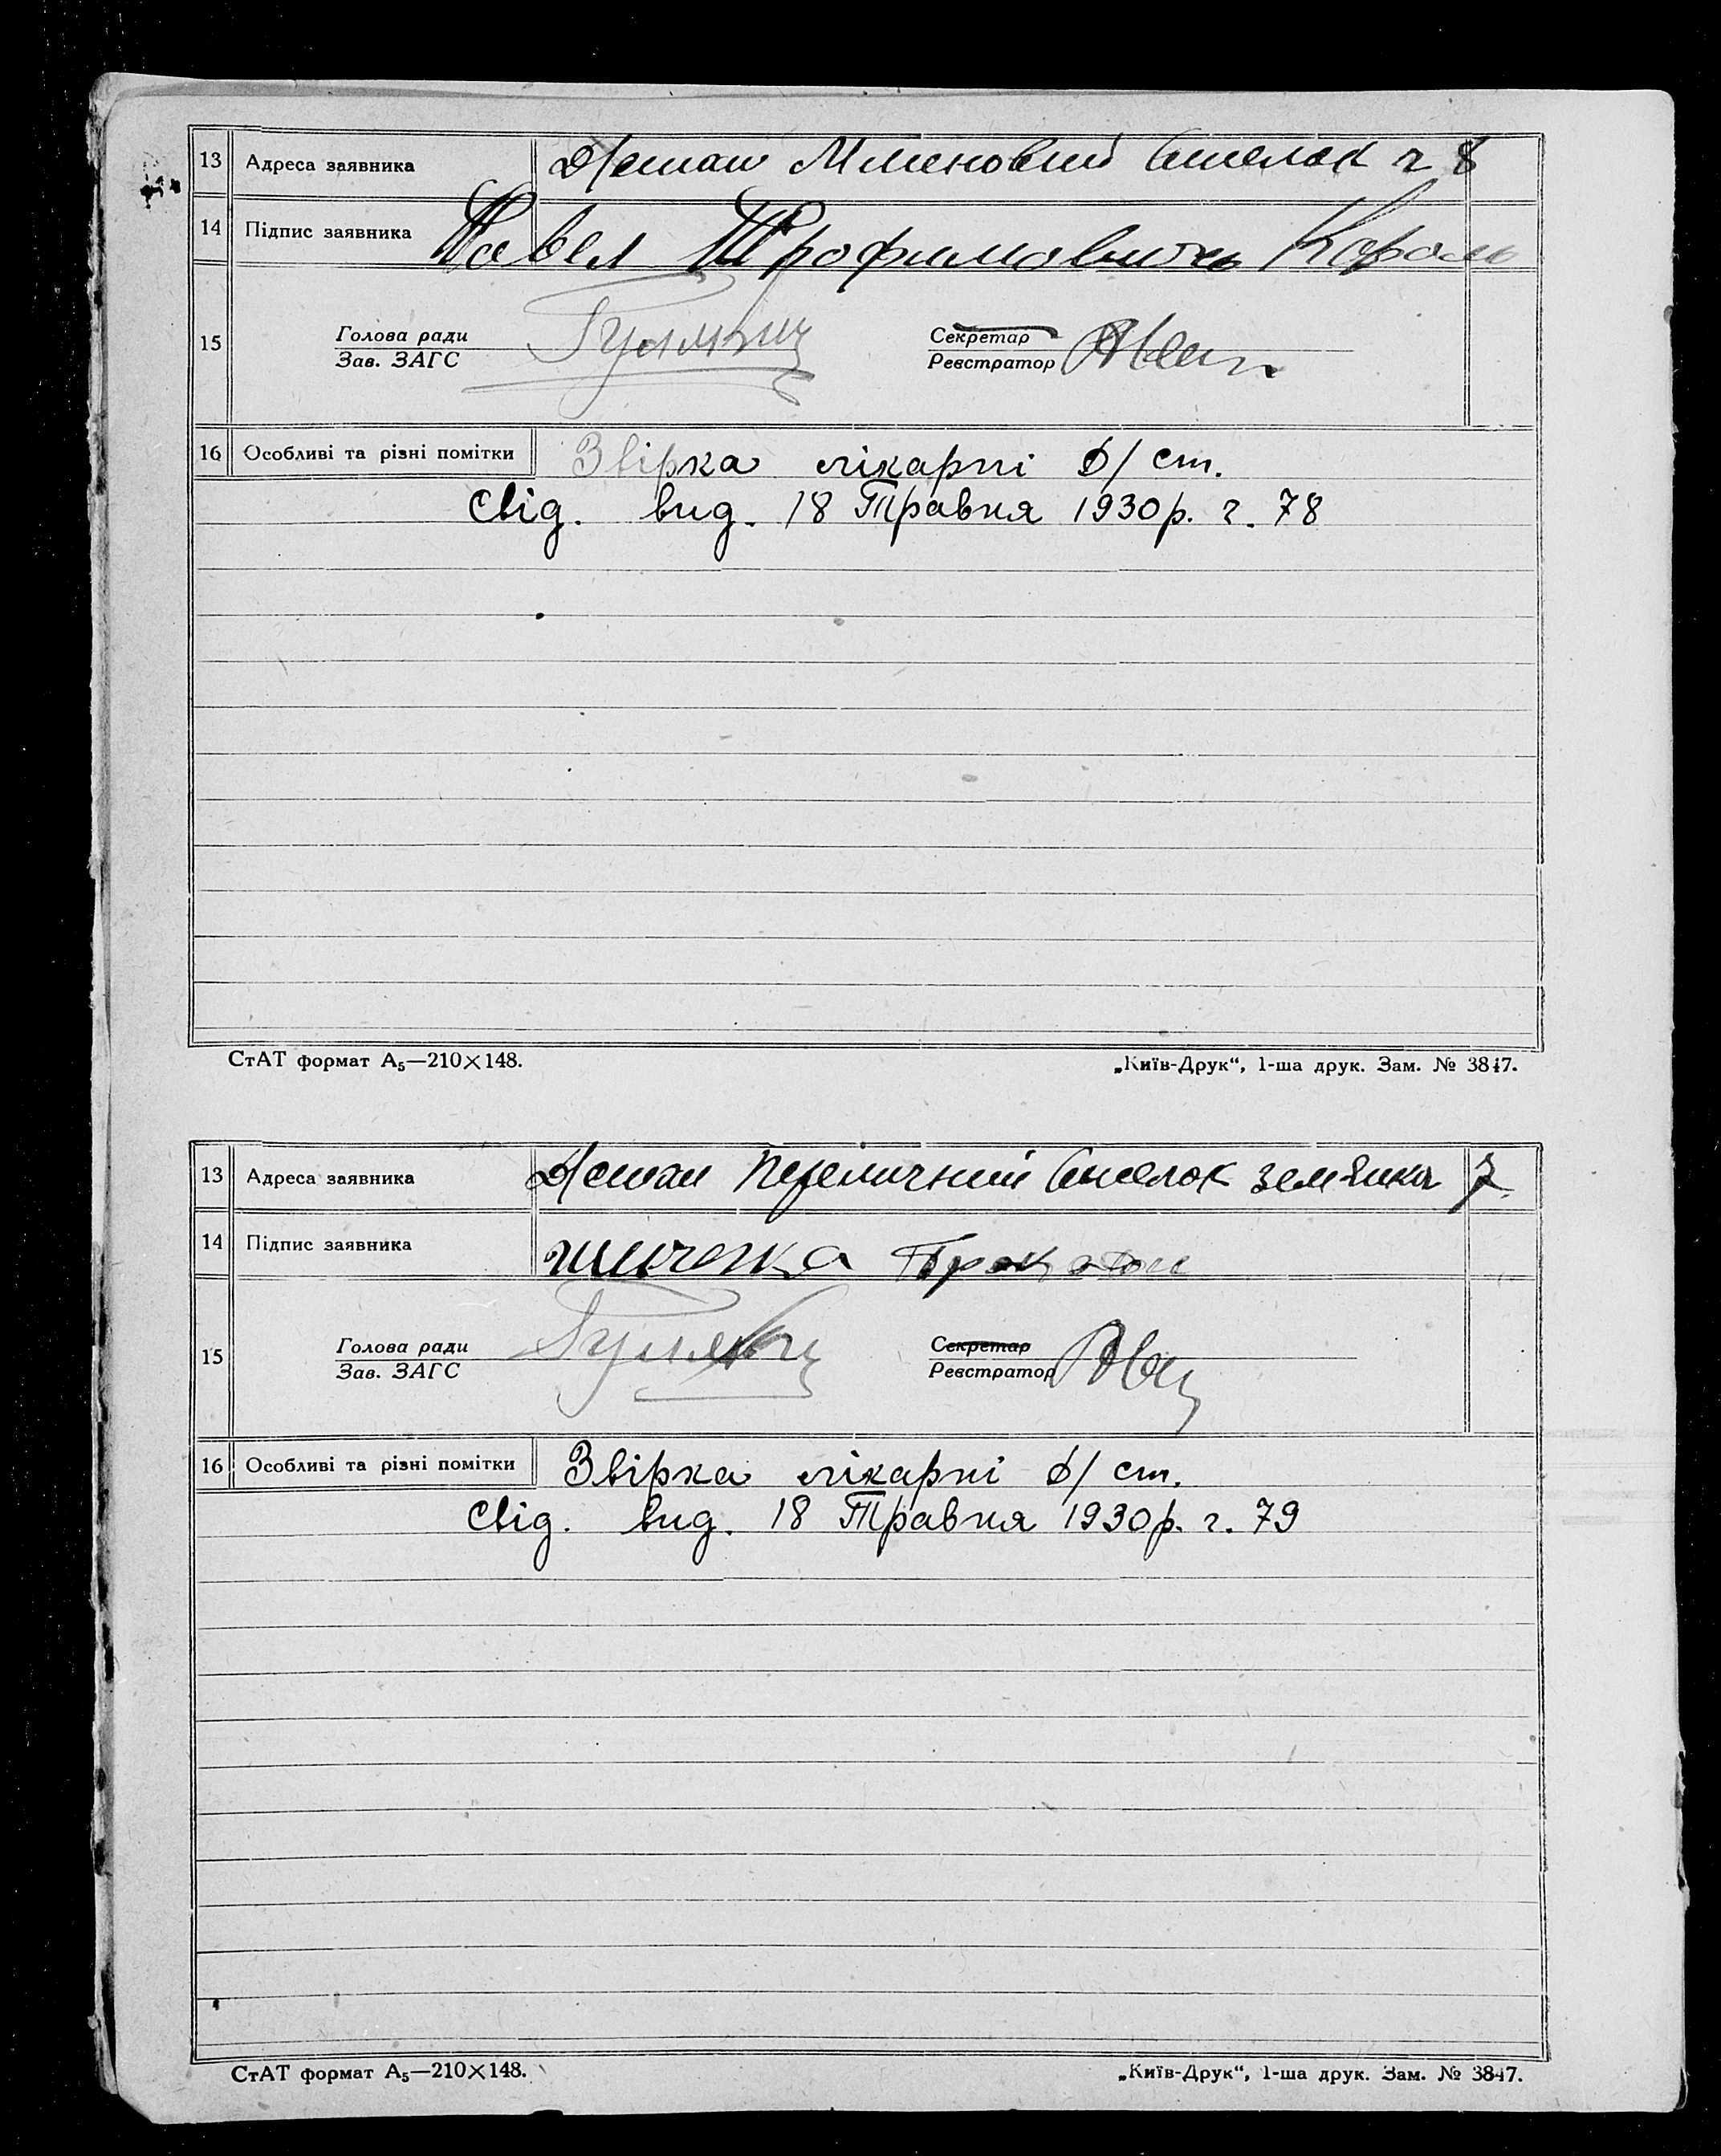 13 Адреса заявника виселок ч 8
14 Підпис заявника Павел Трофимович Король
15 Голова ради Секретар
Зав. ЗАГС Реєстратор
16 Особливі та різні помітки Звірка лікарні б/ ст.
свід. вид. 18 Травня 1930 р. ч. 78
СтАТ формат А₅—210×148. „Київ-Друк“, 1-ша друк. Зам. № 3847.
13 Адреса заявника виселок землянка 7
14 Підпис заявника
15 Голова ради Секретар
Зав. ЗАГС Реєстратор
16 Особливі та різні помітки Звірка лікарні б/ ст.
свід. вид. 18 Травня 1930 р. ч. 79
СтАТ формат А₅—210×148. „Київ-Друк“, 1-ша друк. Зам. № 3847.